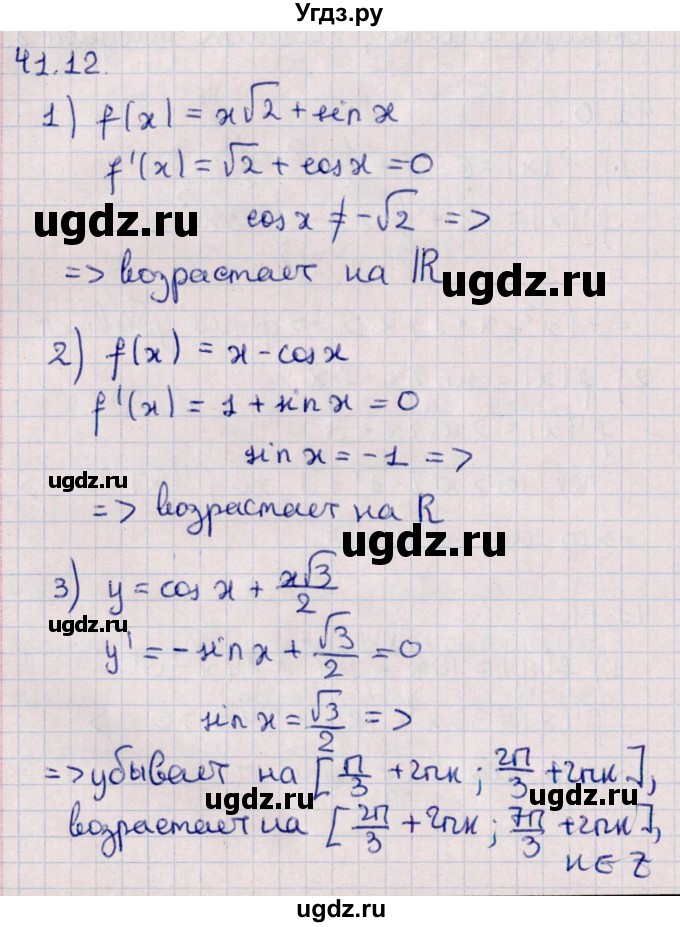 Угдз.ру
41.12.
1) f(x) = x√2 + sin x
f'(x) = √2 + cos x = 0
ugdz.ru
cos x ≠ -√2 =>
ugdz.ru
=> возрастает на ℝ
2) f(x) = x - cos x
f'(x) = 1 + sin x = 0
ugdz.ru
sin x = -1 =>
=> возрастает на R
ugdz.ru
3) y = cos x + x√3/2
ugdz.ru
y' = -sin x + √3/2 = 0
sin x = √3/2 =>
=> убывает на [π/3 + 2πк ; 2π/3 + 2πк],
ugdz.ru
ugdz.ru
возрастает на [2π/3 + 2πк ; 7π/3 + 2πк],
к ∈ Z
ugdz.ru